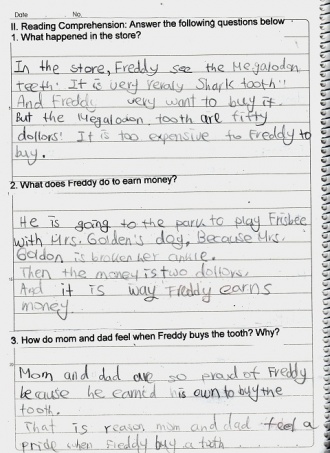 Date No.
II. Reading Comprehension: Answer the following questions below
1. What happened in the store?
In the store, Freddy see the Megalodon
teeth! It is very Shark tooth"
And Freddy very want to buy it.
But the Megalodon tooth are fifty
dollors! It is too expensive to Freddy to
buy.
2. What does Freddy do to earn money?
He is going to the park to play Frisbee
with Mrs. Golden's dog, Because Mrs.
Goldon is broken her ankle.
Then the money is two dollors.
And it is way Freddy earns
money.
3. How do mom and dad feel when Freddy buys the tooth? Why?
Mom and dad are so proud of Freddy
because he earned is own to buy the
tooth.
That is reason mom and dad feel a
pride when Freddy buy a tooth